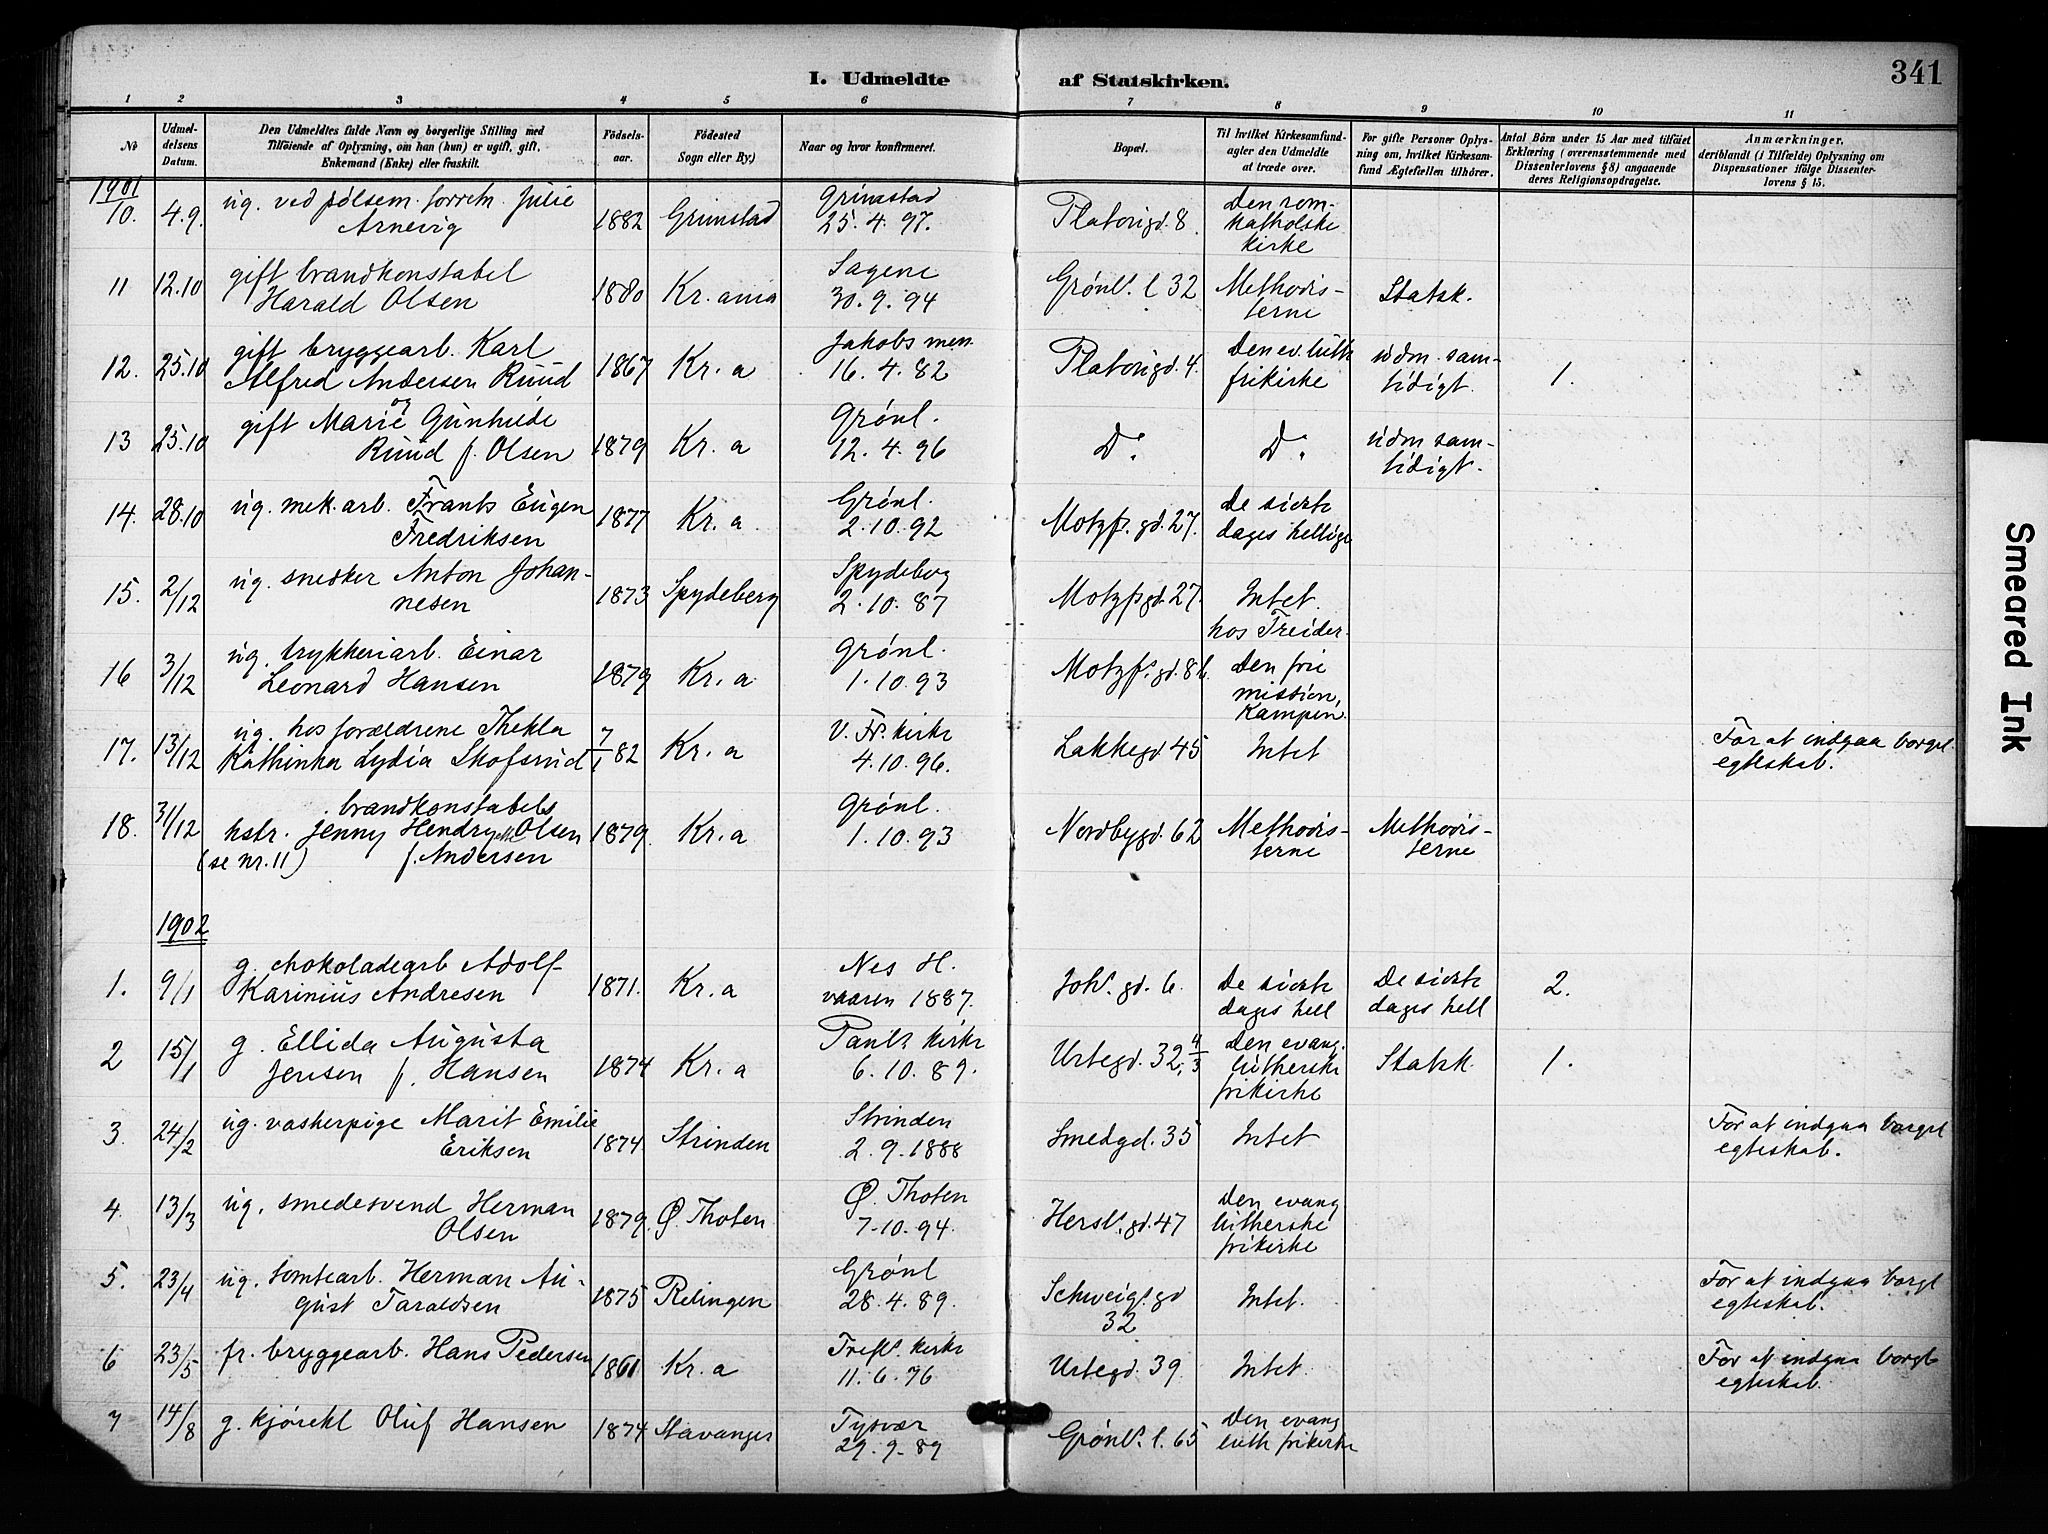 341
I. Udmeldte af Statskirken.
1 2 3 4 5 6 7 8 9 10 11
No
Udmel-
delsens
Datum.
Den Udmeldtes fulde Navn og borgerlige Stilling med
Tilføiende af Oplysning, om han (hun) er ugift, gift,
Enkemand (Enke) eller fraskilt.
Fødsels-
aar.
Fødested
Sogn eller By.)
Naar og hvor konfirmeret.
Bopæl.
Til hvilket Kirkesamfund-
agter den Udmeldte
at træde over.
For gifte Personer Oplys-
ning om, hvilket Kirkesam-
fund Ægtefællen tilhører.
Antal Børn under 15 Aar med tilføiet
Erklæring (overensstemmende med
Dissenterlovens § 8) angaaende
deres Religionsopdragelse.
Anmærkninger,
deriblandt (i Tilfælde) Oplysning om
Dispensationer ifølge Dissenter-
lovens § 15.
1901
10. 4.9. ug. ved pølsem. forretn. Julie
Arnevig
1882 Grimstad
Grimstad
25.4.97.
Platousgd. 8.
Den rom-
katholske
kirke
11 12.10 gift brandkonstabel
Harald Olsen
1880 Kr.ania
Sagene
30.9.94
Grønl. l 32
Methodis-
terne
Statsk.
12. 25.10 gift bryggearb. Karl
Alfred Andersen Ruud
og
1867 Kr.a
Jakobs men.
16.4.82
Platousgd. 4.
Den ev. luth
frikirke
udm. sam-
tidigt.
1.
13 25.10 gift Marie Gunhilde
Ruud f. Olsen
1879 Kr.a
Grønl.
12.4.96
Do Do
udm sam-
tidigt.
14. 28.10 ug. mek.arb. Frants Eugen
Fredriksen
1877 Kr.a
Grønl.
2.10.92
Motzf. gd. 27.
De sidste
dages hellige
15. 2/12 ug. snedker Anton Johan-
nesen
1873 Spydeberg
Spydeberg
2.10.87
Motzf. gd. 27.
Intet.
hos Treider
16 3/12 ug. trykkeriarb. Einar
Leonard Hansen
1879 Kr.a
Grønl.
1.10.93
Motzf. gd. 8b
Den frie
mission,
Kampen.
17. 13/12 ug. hos forældrene Thekla
Kathinka Lydia Skofsrud
7/1 82 Kr.a
V. Fr. kirke
4.10.96.
Lakkegd 45
Intet
For at indgaa borgel
egteskab.
18. 31/12 brandkonstabels
hstr. Jenny Hendryette Olsen
(se nr. 11) f. Andersen
1879. Kr.a
Grønl.
1.10.93
Nordbygd. 62
Methodis-
terne
Methodis-
terne
1902
1. 9/1 g. chokoladearb Adolf
Karinius Andresen
1871. Kr.a
Nes H.
vaaren 1887.
Johs. gd. 6.
De sidste
dages hell
De sidste
dages hell
2.
2 15/1 g. Ellida Augusta
Jensen f. Hansen
1874 Kr.a
Pauls kirke
6.10.89.
Urtegd. 32, 4/3
Den evang.
lutherske
frikirke
Statsk.
1.
3. 24/2 ug. vaskerpige Marit Emilie
Eriksen
1874. Strinden
Strinden
2.9.1888
Smedgd. 35
Intet
For at indgaa borgel
egteskab.
4. 13/3 ug. smedesvend Herman
Olsen
1879. Ø. Thoten
Ø. Thoten
7.10.94.
Hersl. gd. 47
Den evang
lutherske
frikirke
5. 23/4 ug. tomtearb. Herman Au-
gust Taraldsen
1875 Relingen
Grønl
28.4.89.
Schweigs. gd
32
Intet.
For at indgaa borgl
egteskab.
6 23/5 fr. bryggearb. Hans Pedersen
1861 Kr.a
Trefl. kirke
11.6.76
Urtegd. 39.
Intet.
For at indgaa borgl
egteskab.
7 14/8 g. kjørekl Oluf Hansen
1874 Stavanger
Tysvær
29.9.89
Grønl. l. 65
Den evang
luth frikirke
Smeared Ink